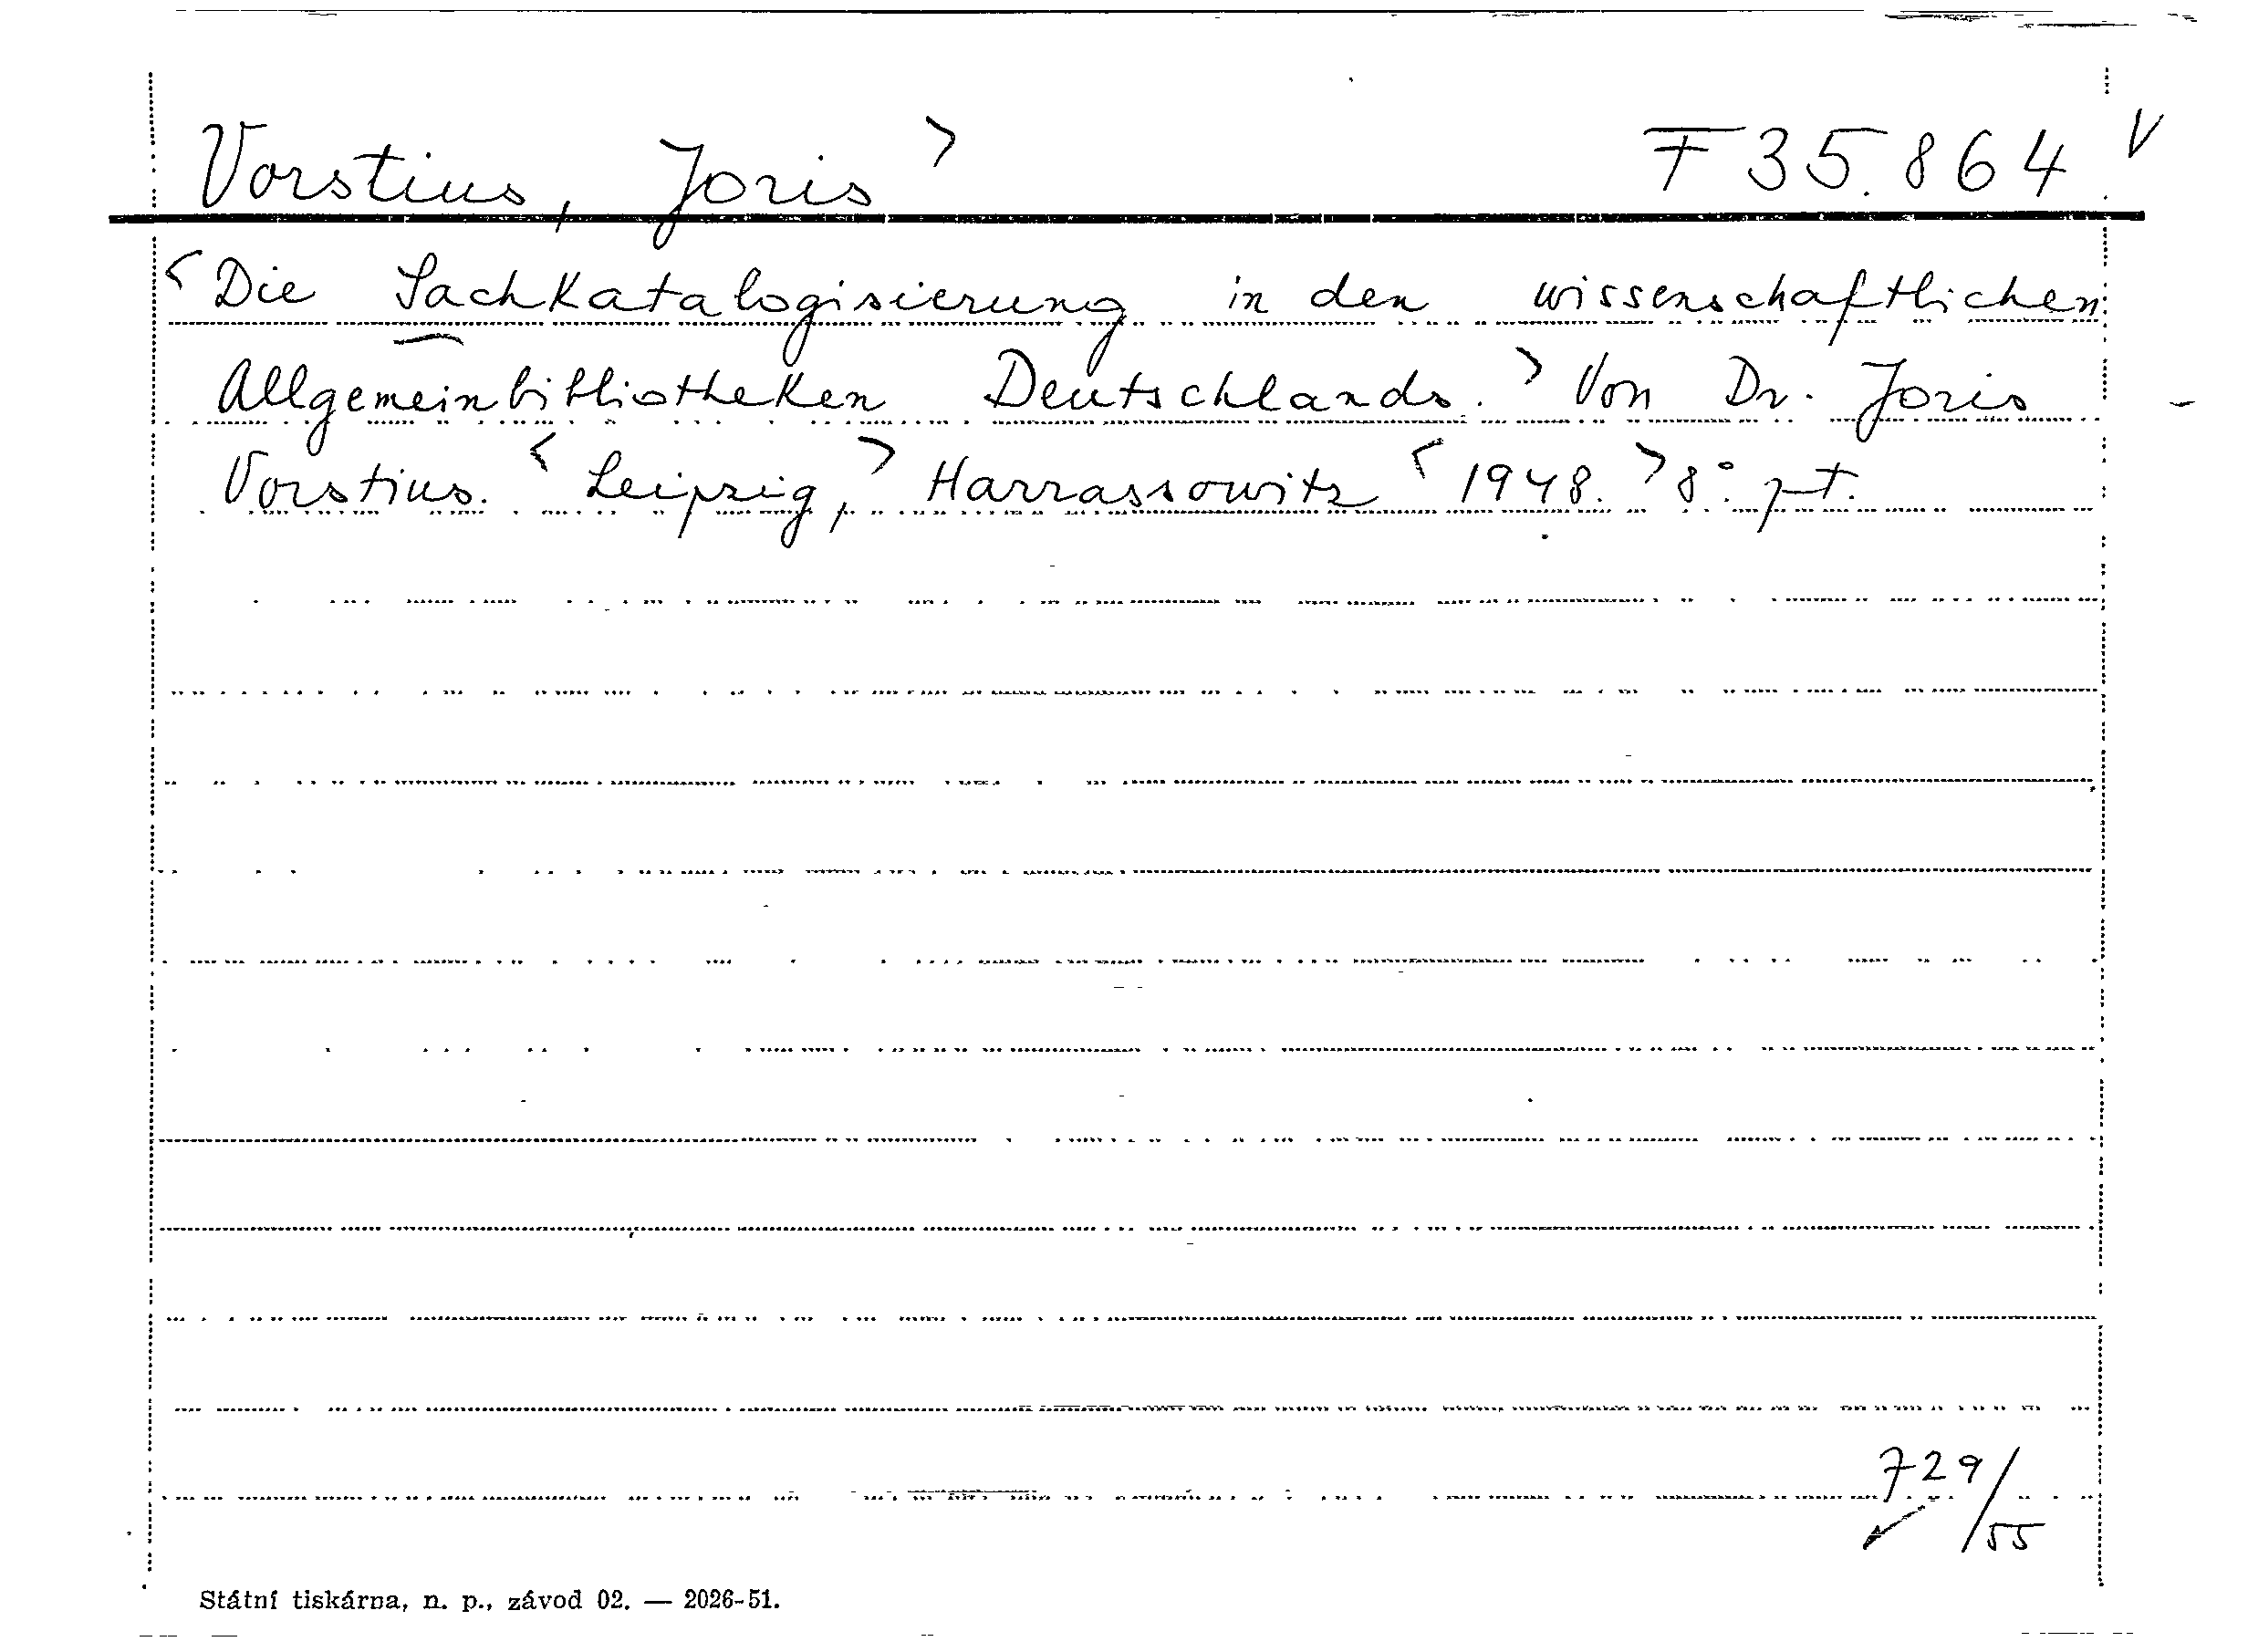 Vorstius, Joris > F 35.864 V
<Die Sachkatalogisierung in den wissenschaftlichen
Allgemeinbibliotheken Deutschlands.> Von Dr. Joris
Vorstius. <Leipzig,> Harrassowitz <1948.> 8°. pt.
729/55
Státní tiskárna, n. p., závod 02. — 2026-51.